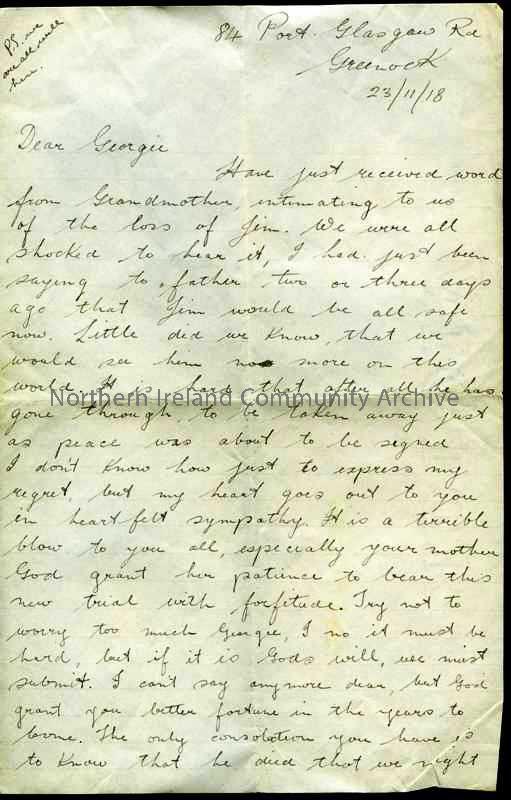 P.S. we
are all well
here.
84 Port. Glasgow Rd
Greenock
23/11/18
Dear Georgie
Have just received word
from Grandmother, intimating to us
of the loss of Jim. We were all
shocked to hear it, I had just been
saying to father two or three days
ago that Jim would be all safe
now. Little did we know, that we
would see him no more on this
world. It is hard that after all he has
Northern Ireland Community Archive
gone through, to be taken away just
as peace was about to be signed
I don't know how just to express my
regret, but my heart goes out to you
in heart felt sympathy. It is a terrible
blow to you all, especially your mother
God grant her patience to bear this
new trial with forfitude. Try not to
worry too much Georgie, I no it must be
hard, but if it is Gods will, we must
submit. I can't say anymore dear, but God
grant you better fortune in the years to
come. The only consolotion you have is
to know that he died that we might